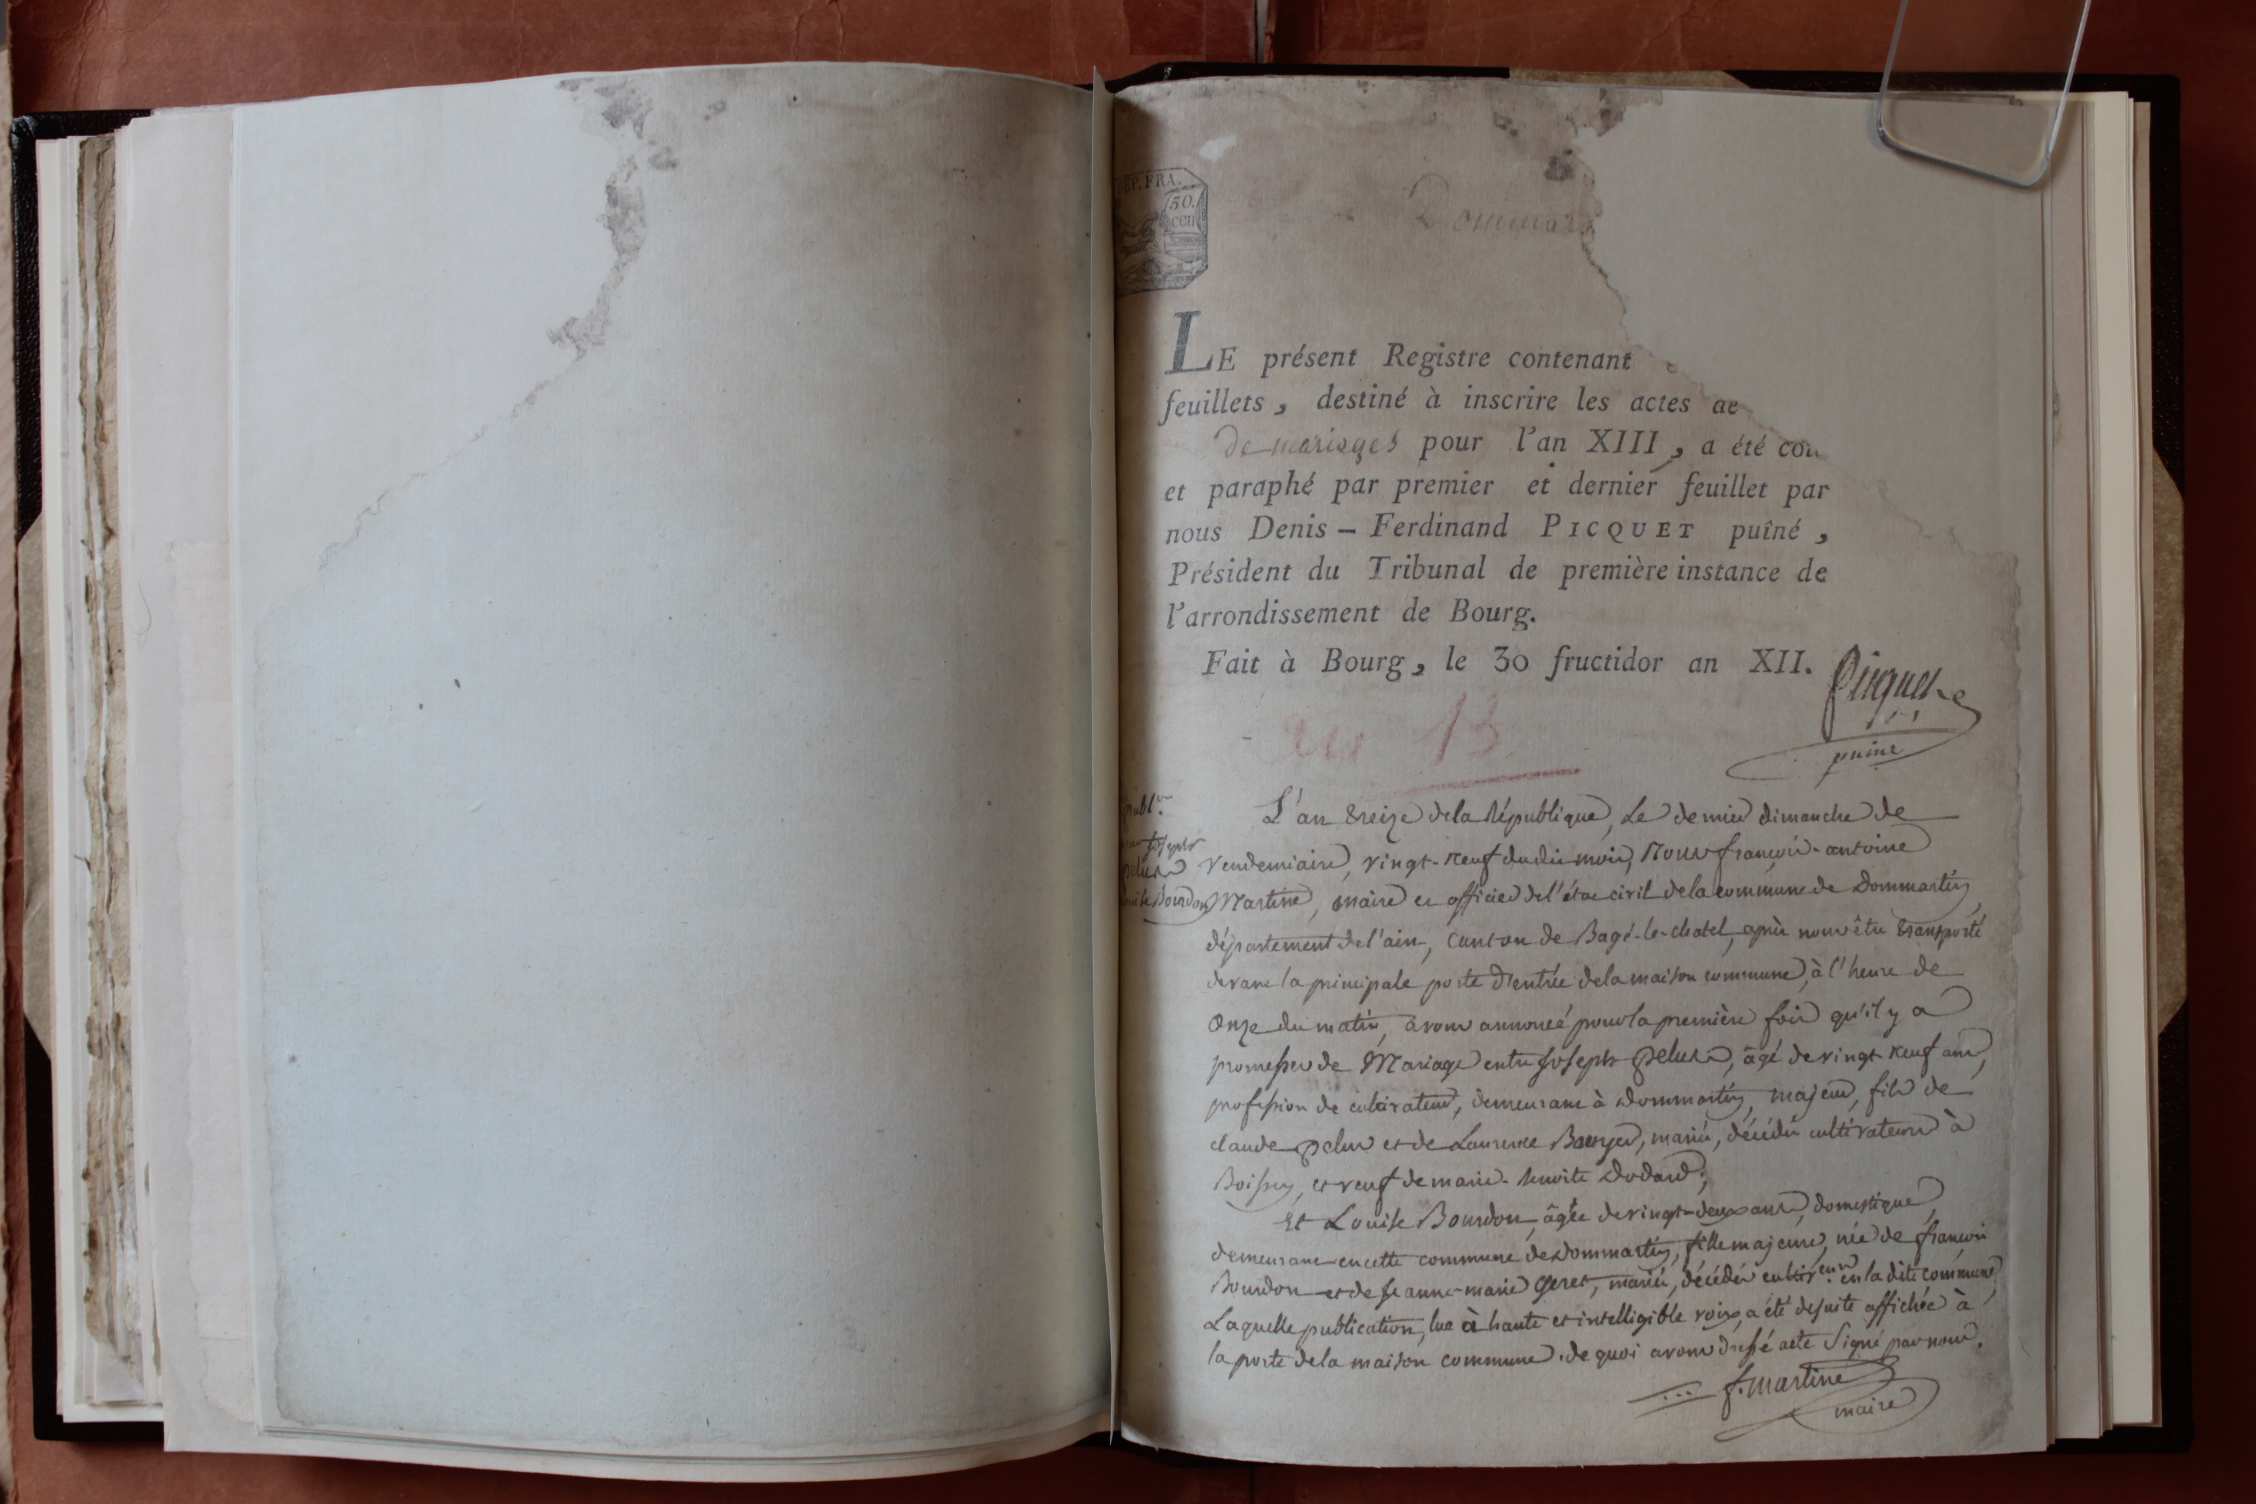 RÉP. FRA.
50.
cen
Dommar
LE présent Registre contenant
feuillets, destiné à inscrire les actes de
de mariages pour l'an XIII, a été co
et paraphé par premier et dernier feuillet par
nous Denis - Ferdinand PICQUET puîné,
Président du Tribunal de première instance de
l'arrondissement de Bourg.
Fait à Bourg, le 30 fructidor an XII.
Picquet
puiné
an 13
publ.on
Joseph
pelus
Bourdon
L'an treize de la République, Le dernier dimanche de
vendemiaire, vingt-neuf dudit mois, Nous françois-antoine
Martine, maire et officier de l'état civil de la commune de Dommartin,
département de l'ain, canton de Bagé-le-chatel, après nous être transporté
devant la principale porte d'entrée de la maison commune, à l'heure de
Onze du matin, avons annoncé pour la première fois qu'il y a
promesses de Mariage entre Joseph pelus, âgé de vingt neuf ans,
profession de cultivateur, demeurant à Dommartin, majeur, fils de
claude pelus et de Laurence Bouyer, mariés, décédés cultivateurs à
Boissey, et veuf de marie-benoite Dodard;
Et Louise Bourdon, âgée de vingt-deux ans, domestique,
demeurant en cette commune de Dommartin, fille majeure, née de françois
Bourdon et de Jeanne-marie Geret, mariés, décédés cultiv.eurs en la dite commune,
Laquelle publication, lue à haute et intelligible voix, a été desuite affichée à
la porte de la maison commune. de quoi avons dressé acte Signé par nous.
f. Martine
maire